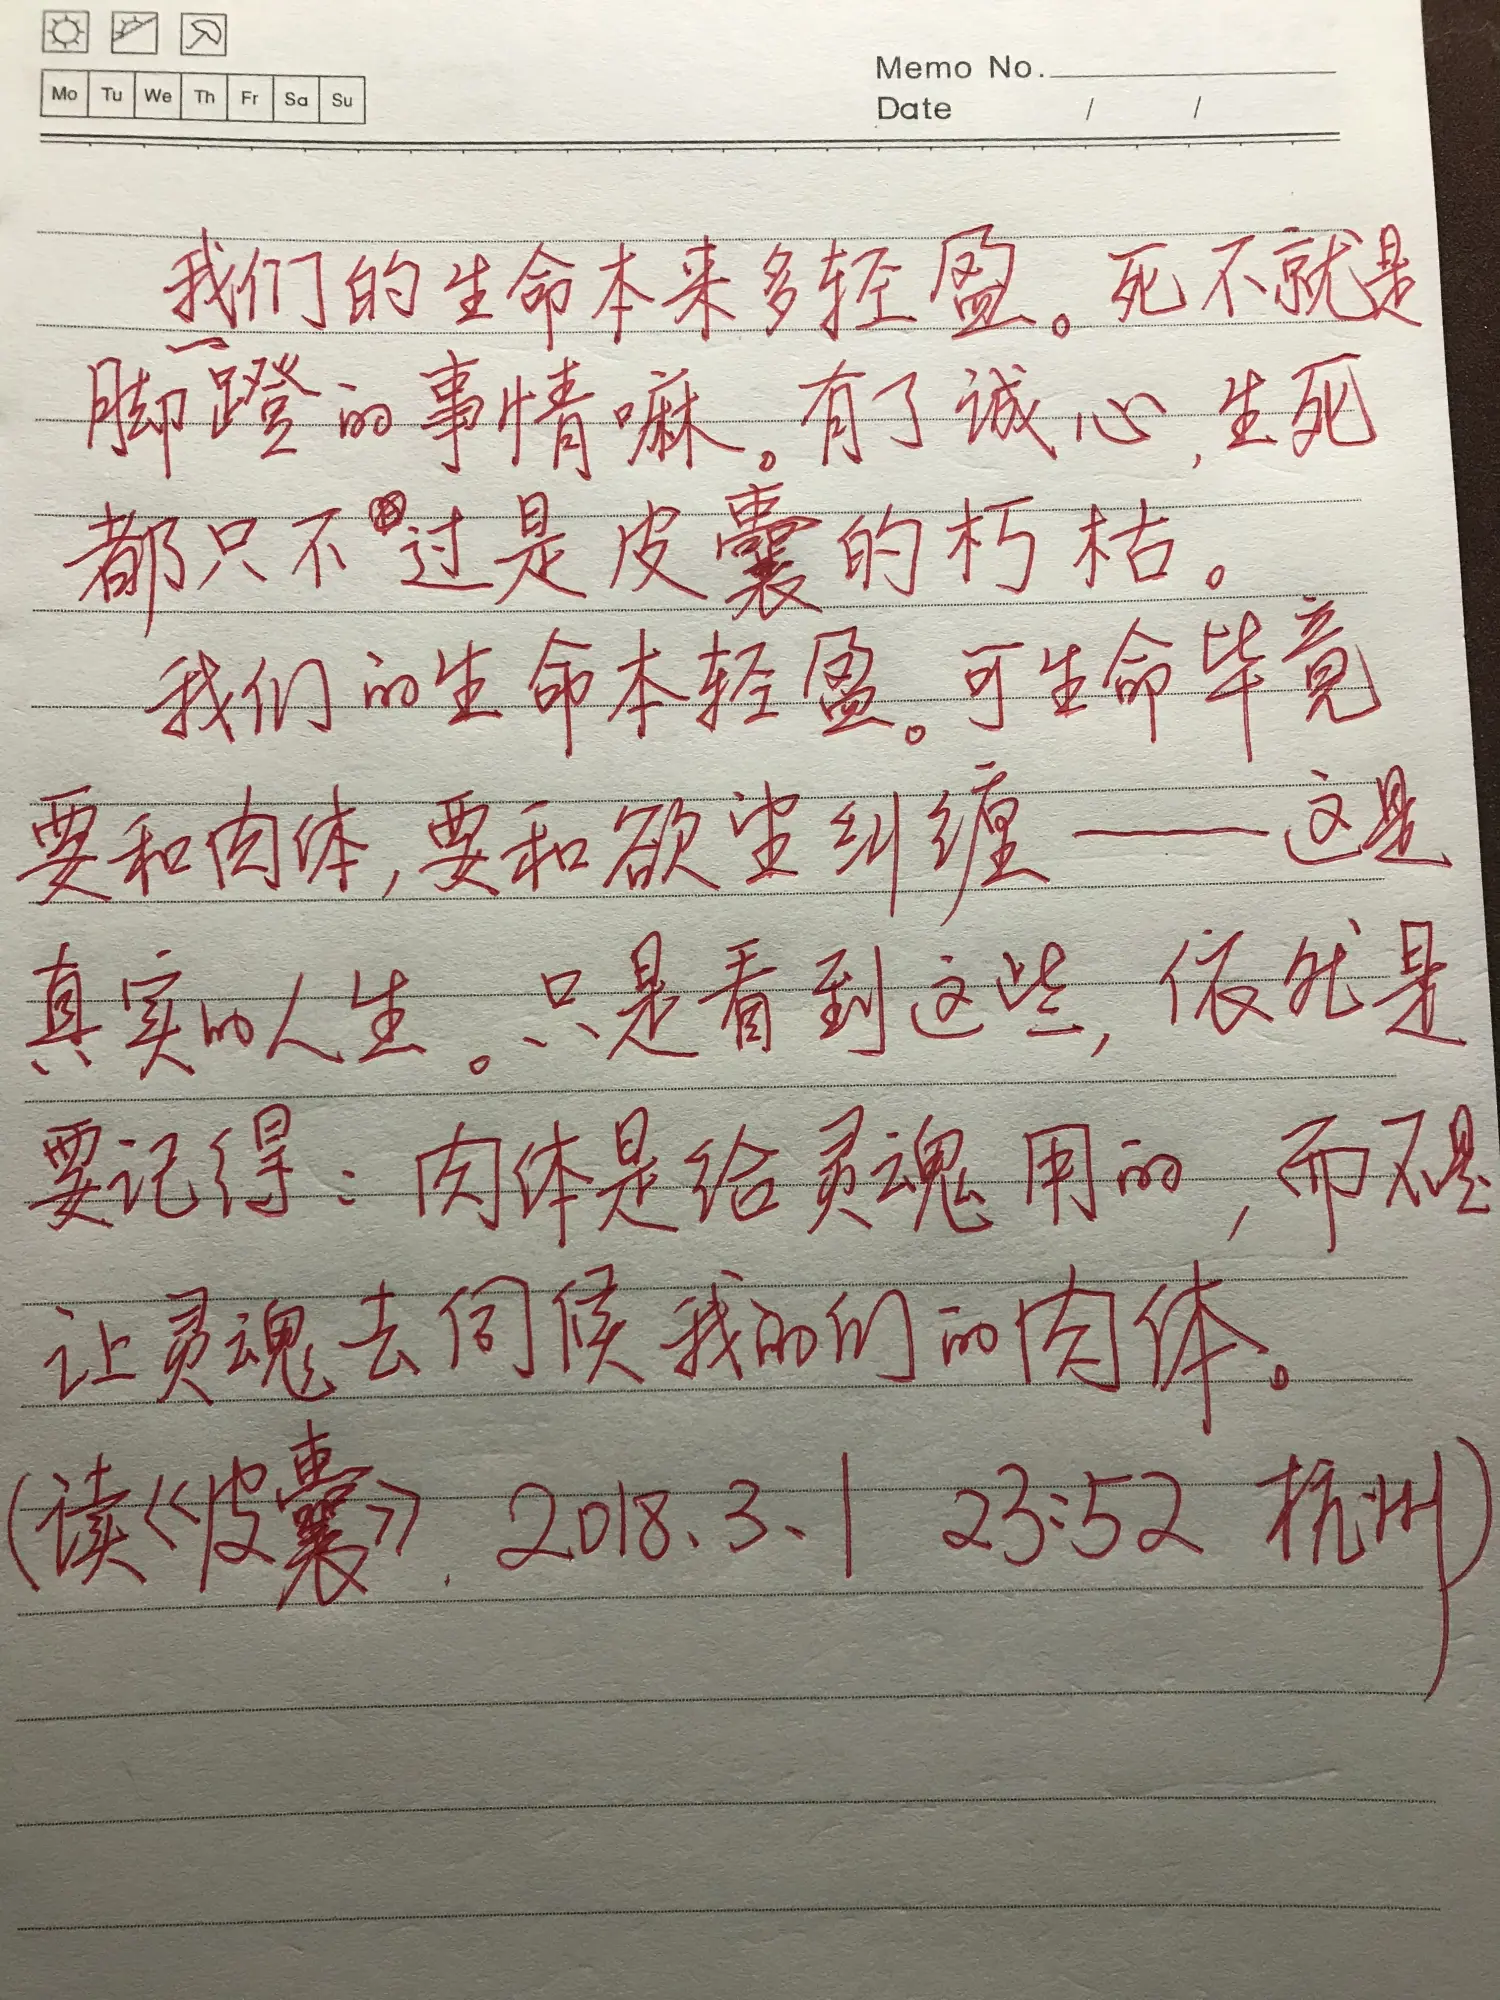 Memo No.
Mo Tu We Th Fr Sa Su
Date / /
我们的生命本来多轻盈。死不就是
脚一蹬的事情嘛。有了诚心,生死
都只不过是皮囊的朽枯。
我们的生命本轻盈。可生命毕竟
要和肉体,要和欲望纠缠——这是
真实的人生。只是看到这些,依然是
要记得:肉体是给灵魂用的,而不是
让灵魂去伺候我的们的肉体。
(读《皮囊》. 2018.3.1 23:52 杭州)